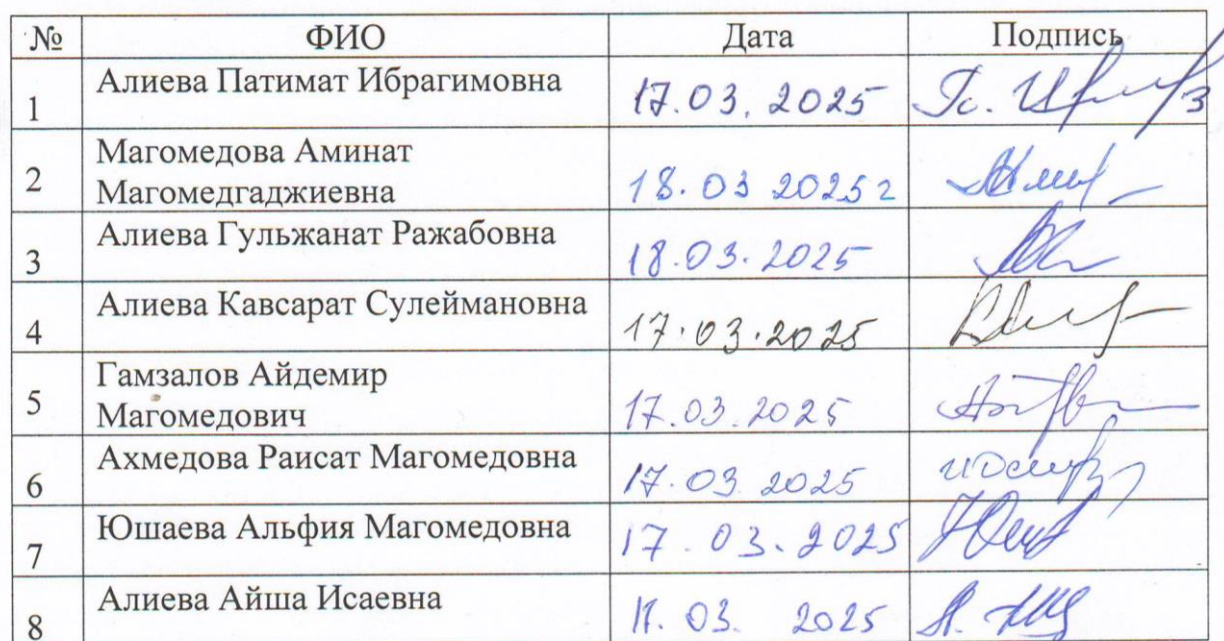 № ФИО Дата Подпись
1 Алиева Патимат Ибрагимовна 17.03.2025
2 Магомедова Аминат
Магомедгаджиевна 18.03 2025г
3 Алиева Гульжанат Ражабовна 18.03.2025
4 Алиева Кавсарат Сулеймановна 17.03.2025
5 Гамзалов Айдемир
Магомедович 17.03.2025
6 Ахмедова Раисат Магомедовна 17.03.2025
7 Юшаева Альфия Магомедовна 17.03.2025
8 Алиева Айша Исаевна 03. 2025